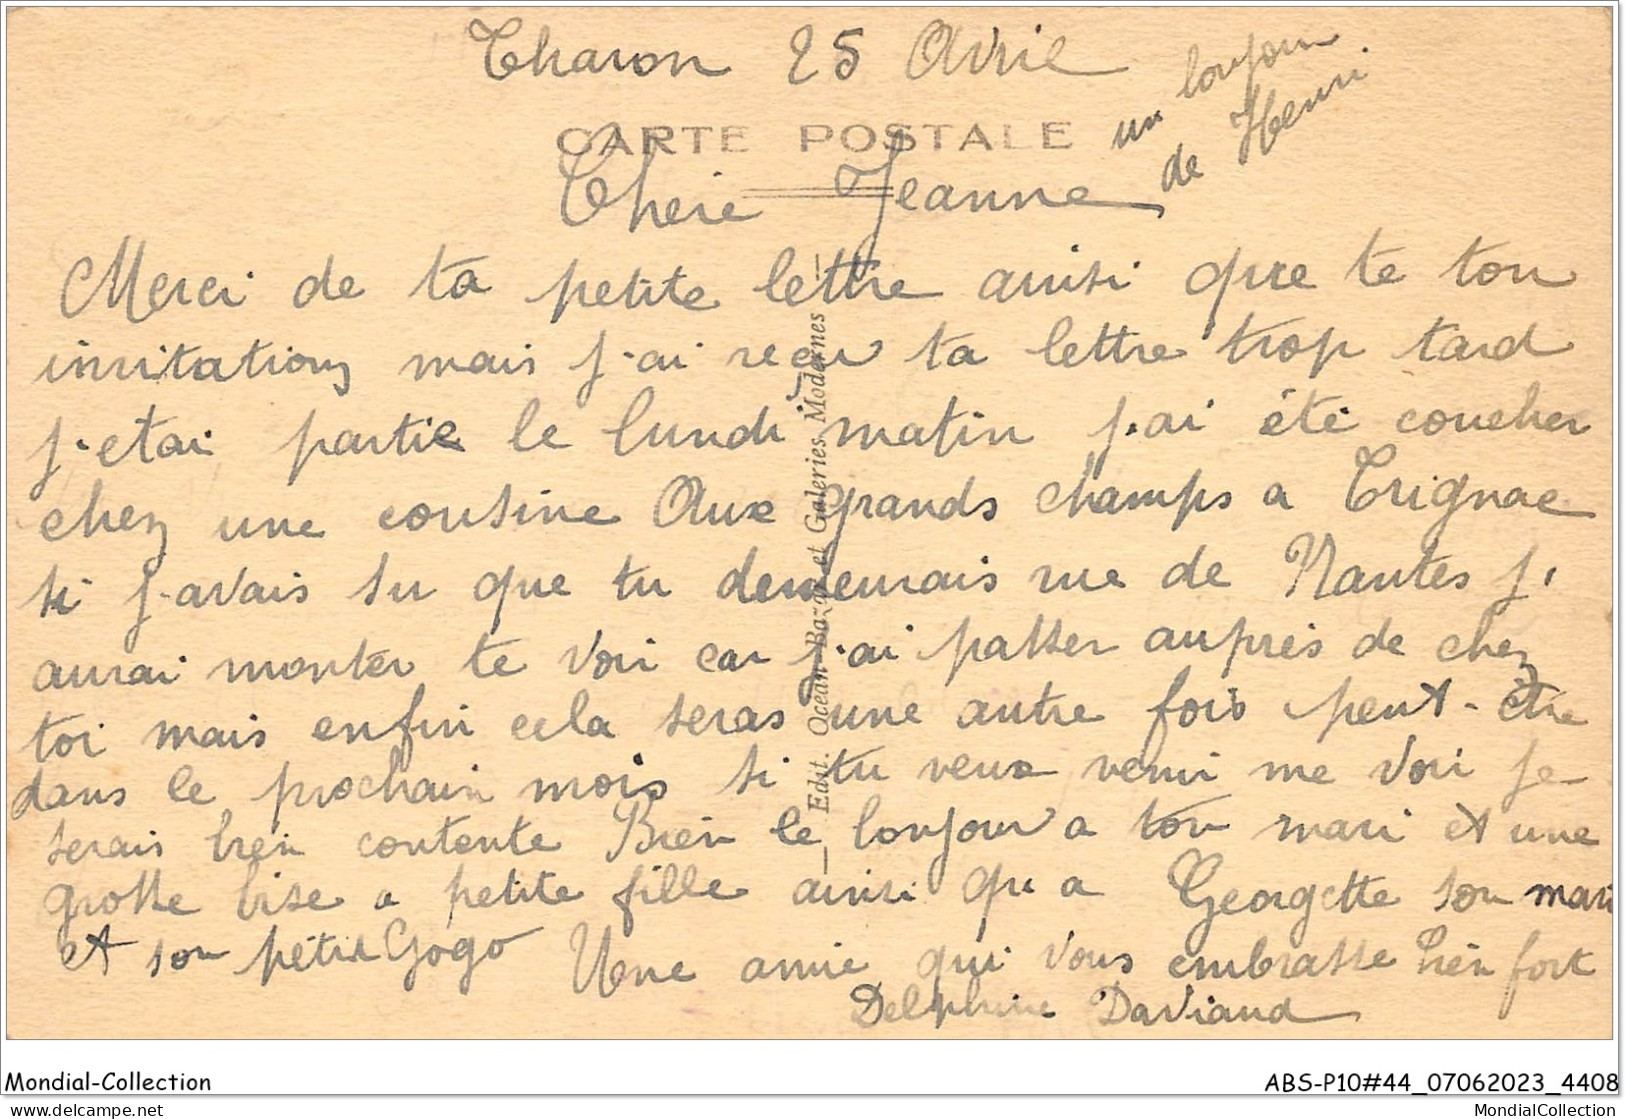 Tharon 25 Avril
un bonjour
de Henri.
CARTE POSTALE
Chere Jeanne
Merci de ta petite lettre ainsi que te ton
invitations mais j-ai reçu ta lettre trop tard
j-etai partie le lundi matin j-ai été coucher
chez une cousine Aux grands champs a Trignac
si j-avais su que tu demeurais rue de Nantes j,
aurai monter te voir car j-ai passer auprès de chez
toi mais enfin cela seras une autre fois peut-etre
dans le prochain mois si tu veux venir me voir je
serais bien contente Bien le bonjour a ton mari et une
grosse bise a petite fille ainsi qu a Georgette son mari
et son pétit Gogo Une amie qui vous embrasse bien fort
Delphine Daviaud
Edit. Océan-Bazar et Galeries Modernes
Mondial-Collection
ABS-P10#44_07062023_4408
delcampe.net
MondialCollection